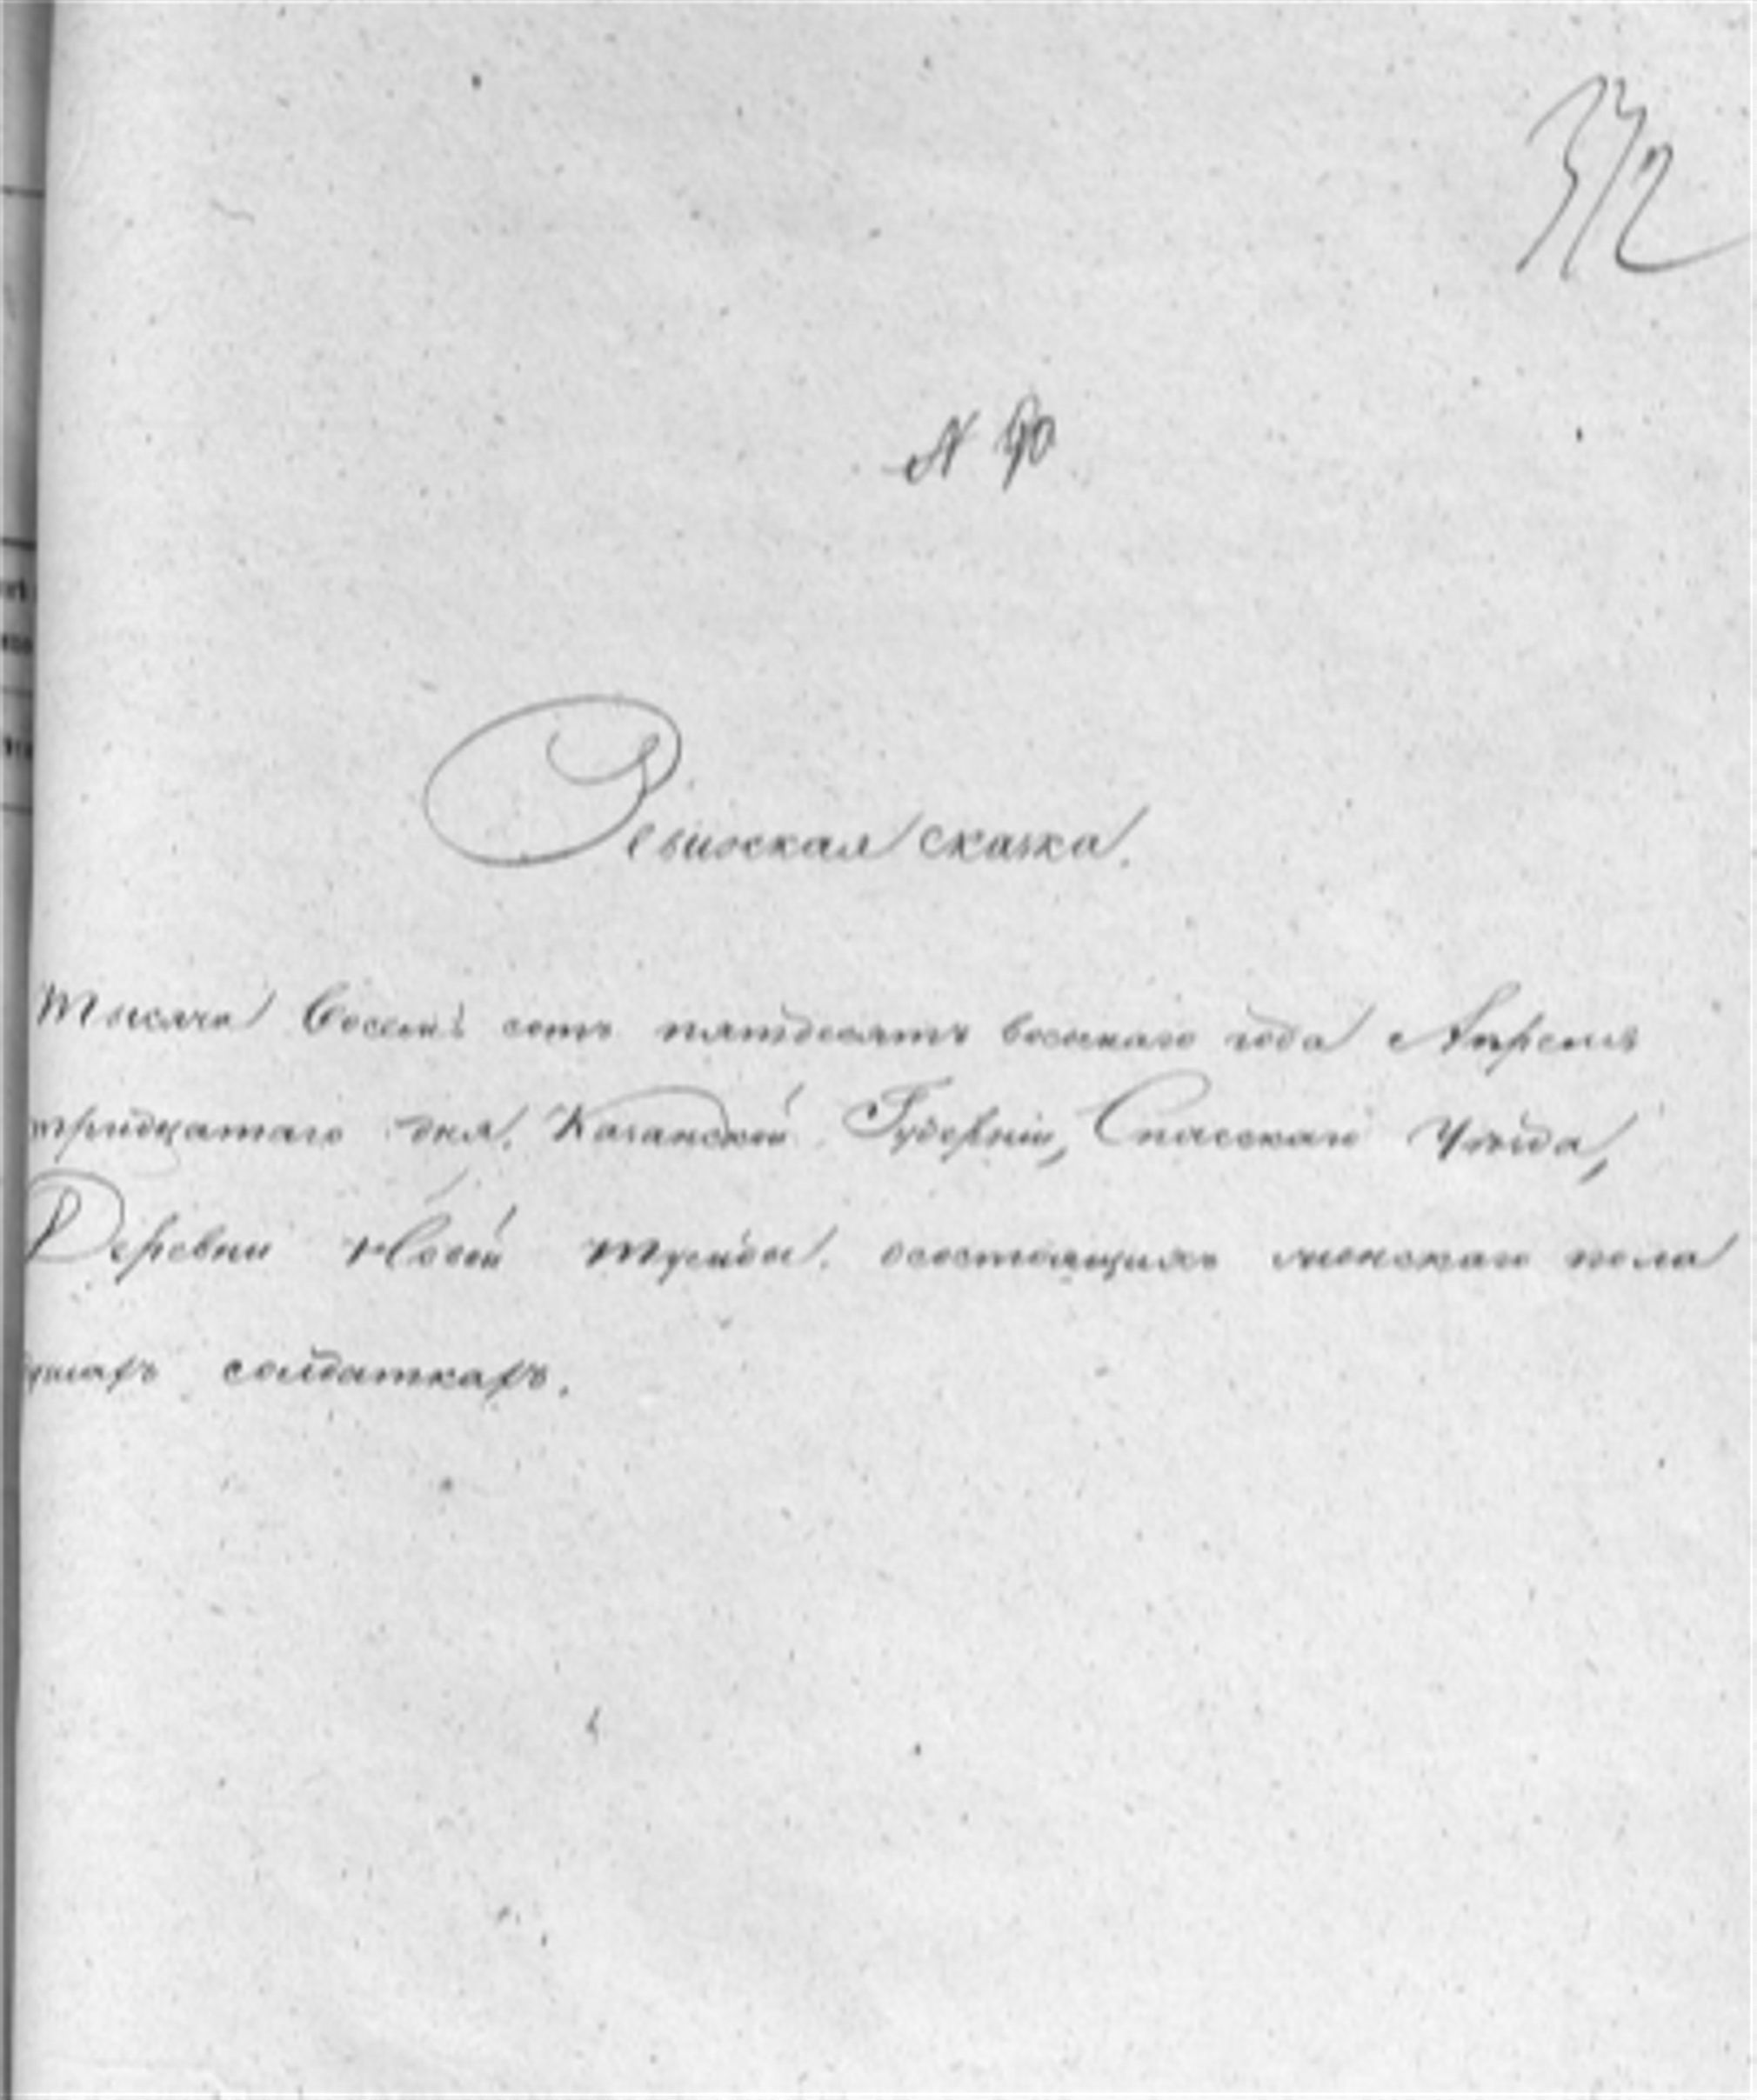 372
N 90
Ревизская сказка.
Тысяча Восемь сотъ пятдесятъ восьмаго года Апреля
тридцатаго дня, Казанской Губерніи, Спасскаго Уѣзда,
Деревни Новой осостоящихъ женскаго пола
душахъ солдаткахъ.